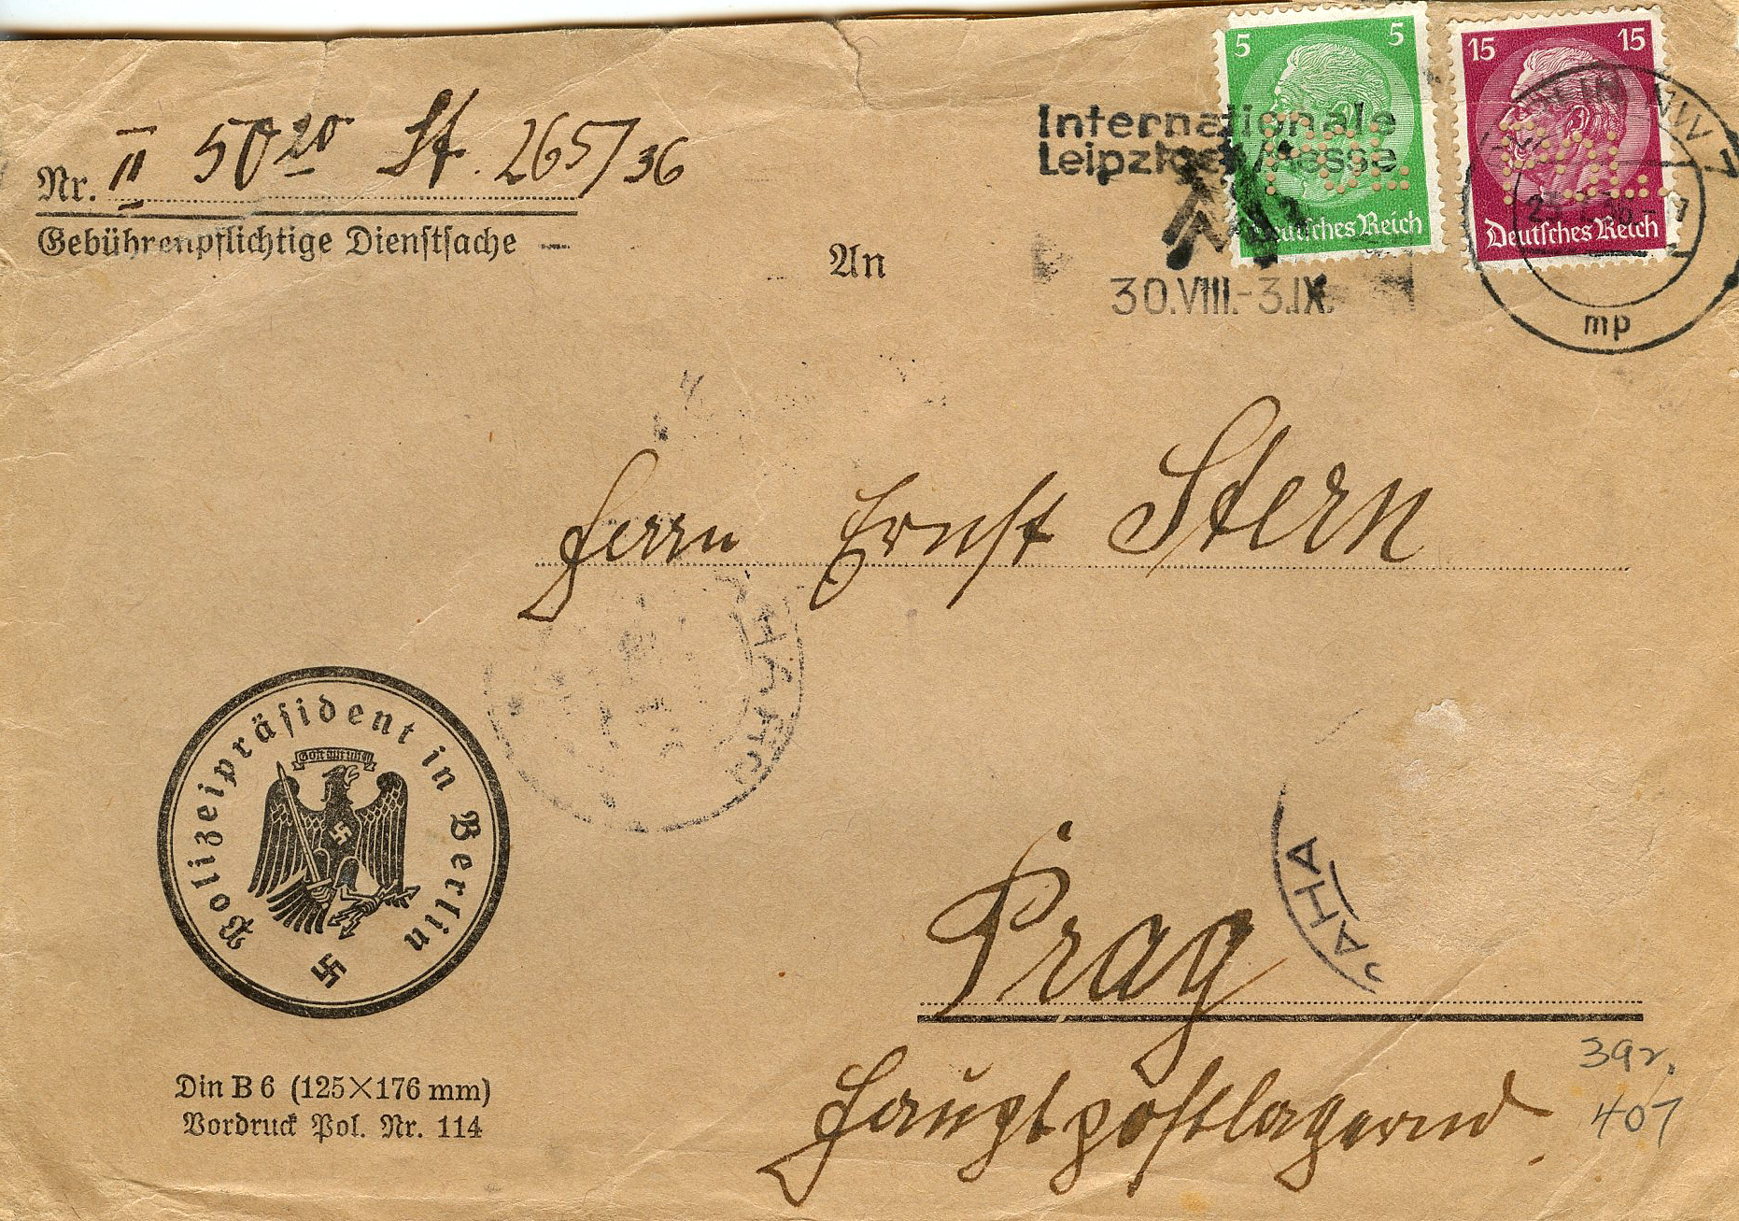 Nr. II 5020 St. 265/36
Gebührenpflichtige Dienstsache
An
5 5
Deutsches Reich
15 15
Deutsches Reich
POL.
POL.
Internationale
Leipziger Messe
30.VIII.-3.IX.
BERLIN NW 7
mp
Herrn Ernst Stern
PRAHA
Polizeipräsident in Berlin
Gott mit uns
Prag
PAHA
Hauptpostlagernd
39r.
407
Din B 6 (125×176 mm)
Vordruck Pol. Nr. 114